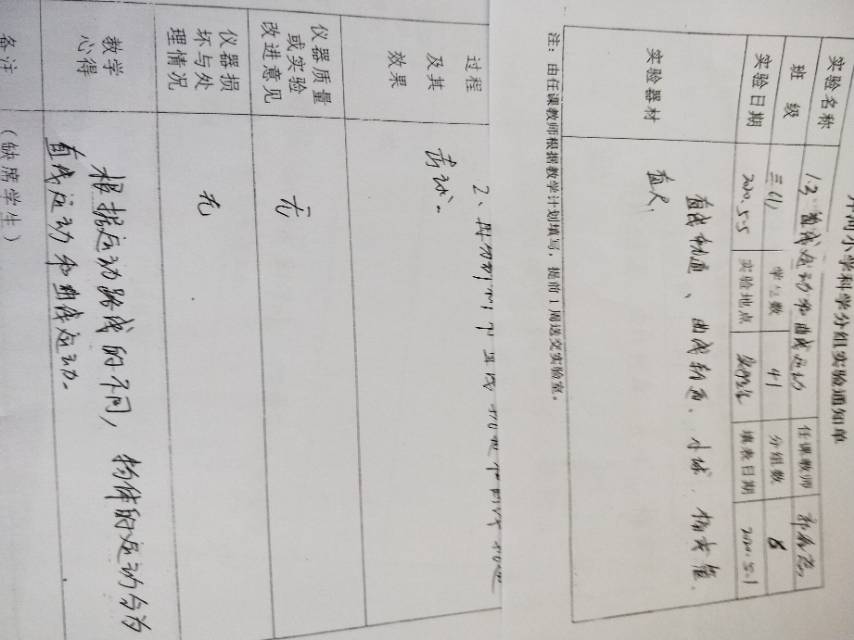 小学科学分组实验通知单
实验名称 1.3 直线运动和曲线运动 任课教师
班 级 三(1) 学生数 41 分组数 8
实验日期 2020.5.5 实验地点 实验室 填表日期 2020.5.1
实验器材 直线轨道、曲线轨道、小球、
注：由任课教师根据教学计划填写，提前1周送交实验室。
过程
及其
效果
2、再分别
仪器质量
或实验
改进意见
无
仪器损
坏与处
理情况
无
教学
心得
根据运动路线的不同，物体的运动分为
直线运动和曲线运动。
备注
（缺席学生）